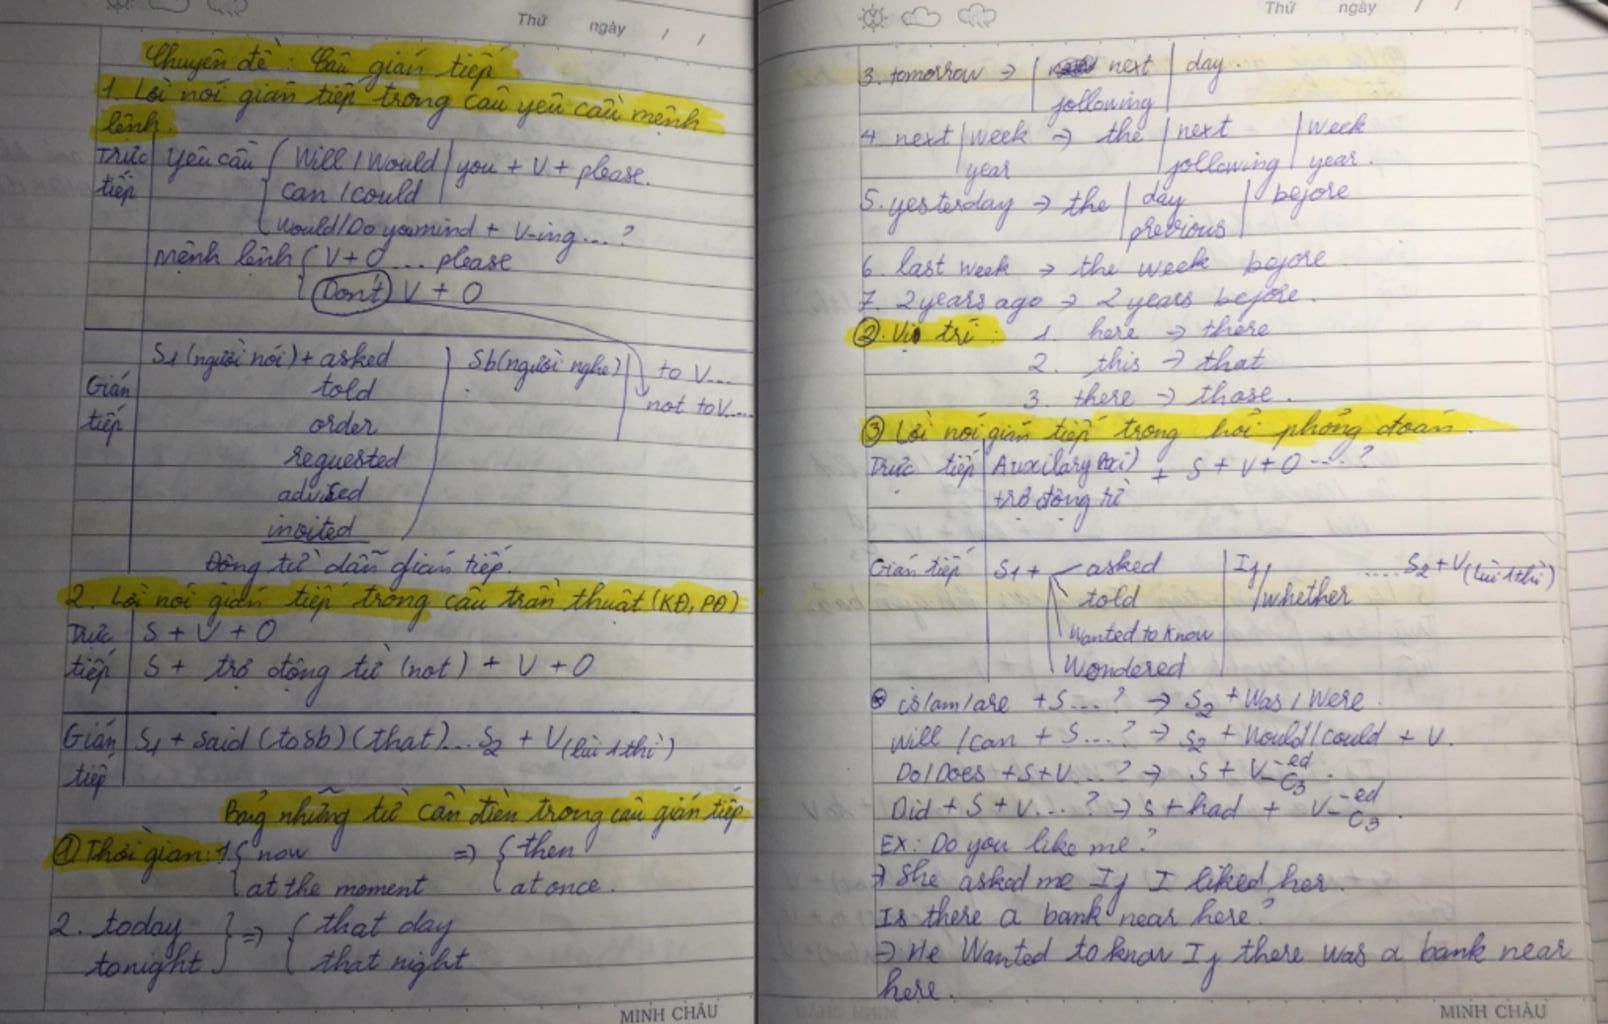 Thứ ngày / /
Chuyên đề: Câu gián tiếp
1. Lời nói gián tiếp trong câu yêu cầu mệnh
lệnh.
Trực tiếp | yêu cầu { Will / Would | you + V + please.
can / could
Would / Do you mind + V-ing ... ?
mệnh lệnh { V + O ... please
(Don't) V + O
Gián tiếp | S1 (người nói) + asked | Sb (người nghe) | to V...
told | not to V....
order
requested
advised
invited
Động từ dẫn gián tiếp.
2. Lời nói gián tiếp trong câu trần thuật (KĐ, PĐ)
Trực | S + V + O
tiếp | S + trợ động từ (not) + V + O
Gián | S1 + said (to sb) (that)... S2 + V (lùi 1 thì)
tiếp
Bảng những từ cần điền trong câu gián tiếp
① Thời gian: 1 { now => { then
at the moment at once.
2. today } => { that day
tonight that night
MINH CHÂU
Thứ ngày / /
3. tomorrow → | next | day.
following
4. next | week → the | next | week
year following year.
5. yesterday → the | day | before
previous
6. last week → the week before
7. 2 years ago → 2 years before.
② Vị trí: 1. here → there
2. this → that
3. there → those.
③ Lời nói gián tiếp trong hỏi phỏng đoán.
Trực tiếp | Auxilary (Axi) + S + V + O ....?
trợ động từ
Gián tiếp | S1 + asked | If/ .... S2 + V (lùi 1 thì)
told /whether
Wanted to know
Wondered
* is/am/are + S...? → S2 + Was / Were
Will / Can + S...? → S2 + Would / could + V.
Do/Does + S + V...? → S + V-ed/C3.
Did + S + V...? → S + had + V-ed/C3.
EX: Do you like me?
→ She asked me If I liked her.
Is there a bank near here?
→ He Wanted to know If there was a bank near
here.
MINH CHÂU